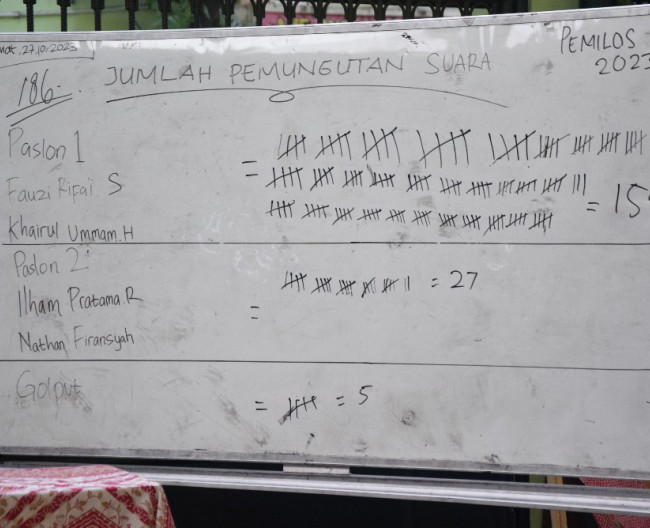 27.10.2023
PEMILOS
2023
186
JUMLAH PEMUNGUTAN SUARA
Paslon 1
Fauzi Rifai S
Khairul Ummam.H
=
= 15
Paslon 2
Ilham Pratama.R
Nathan Firansyah
=
= 27
Golput
=
= 5